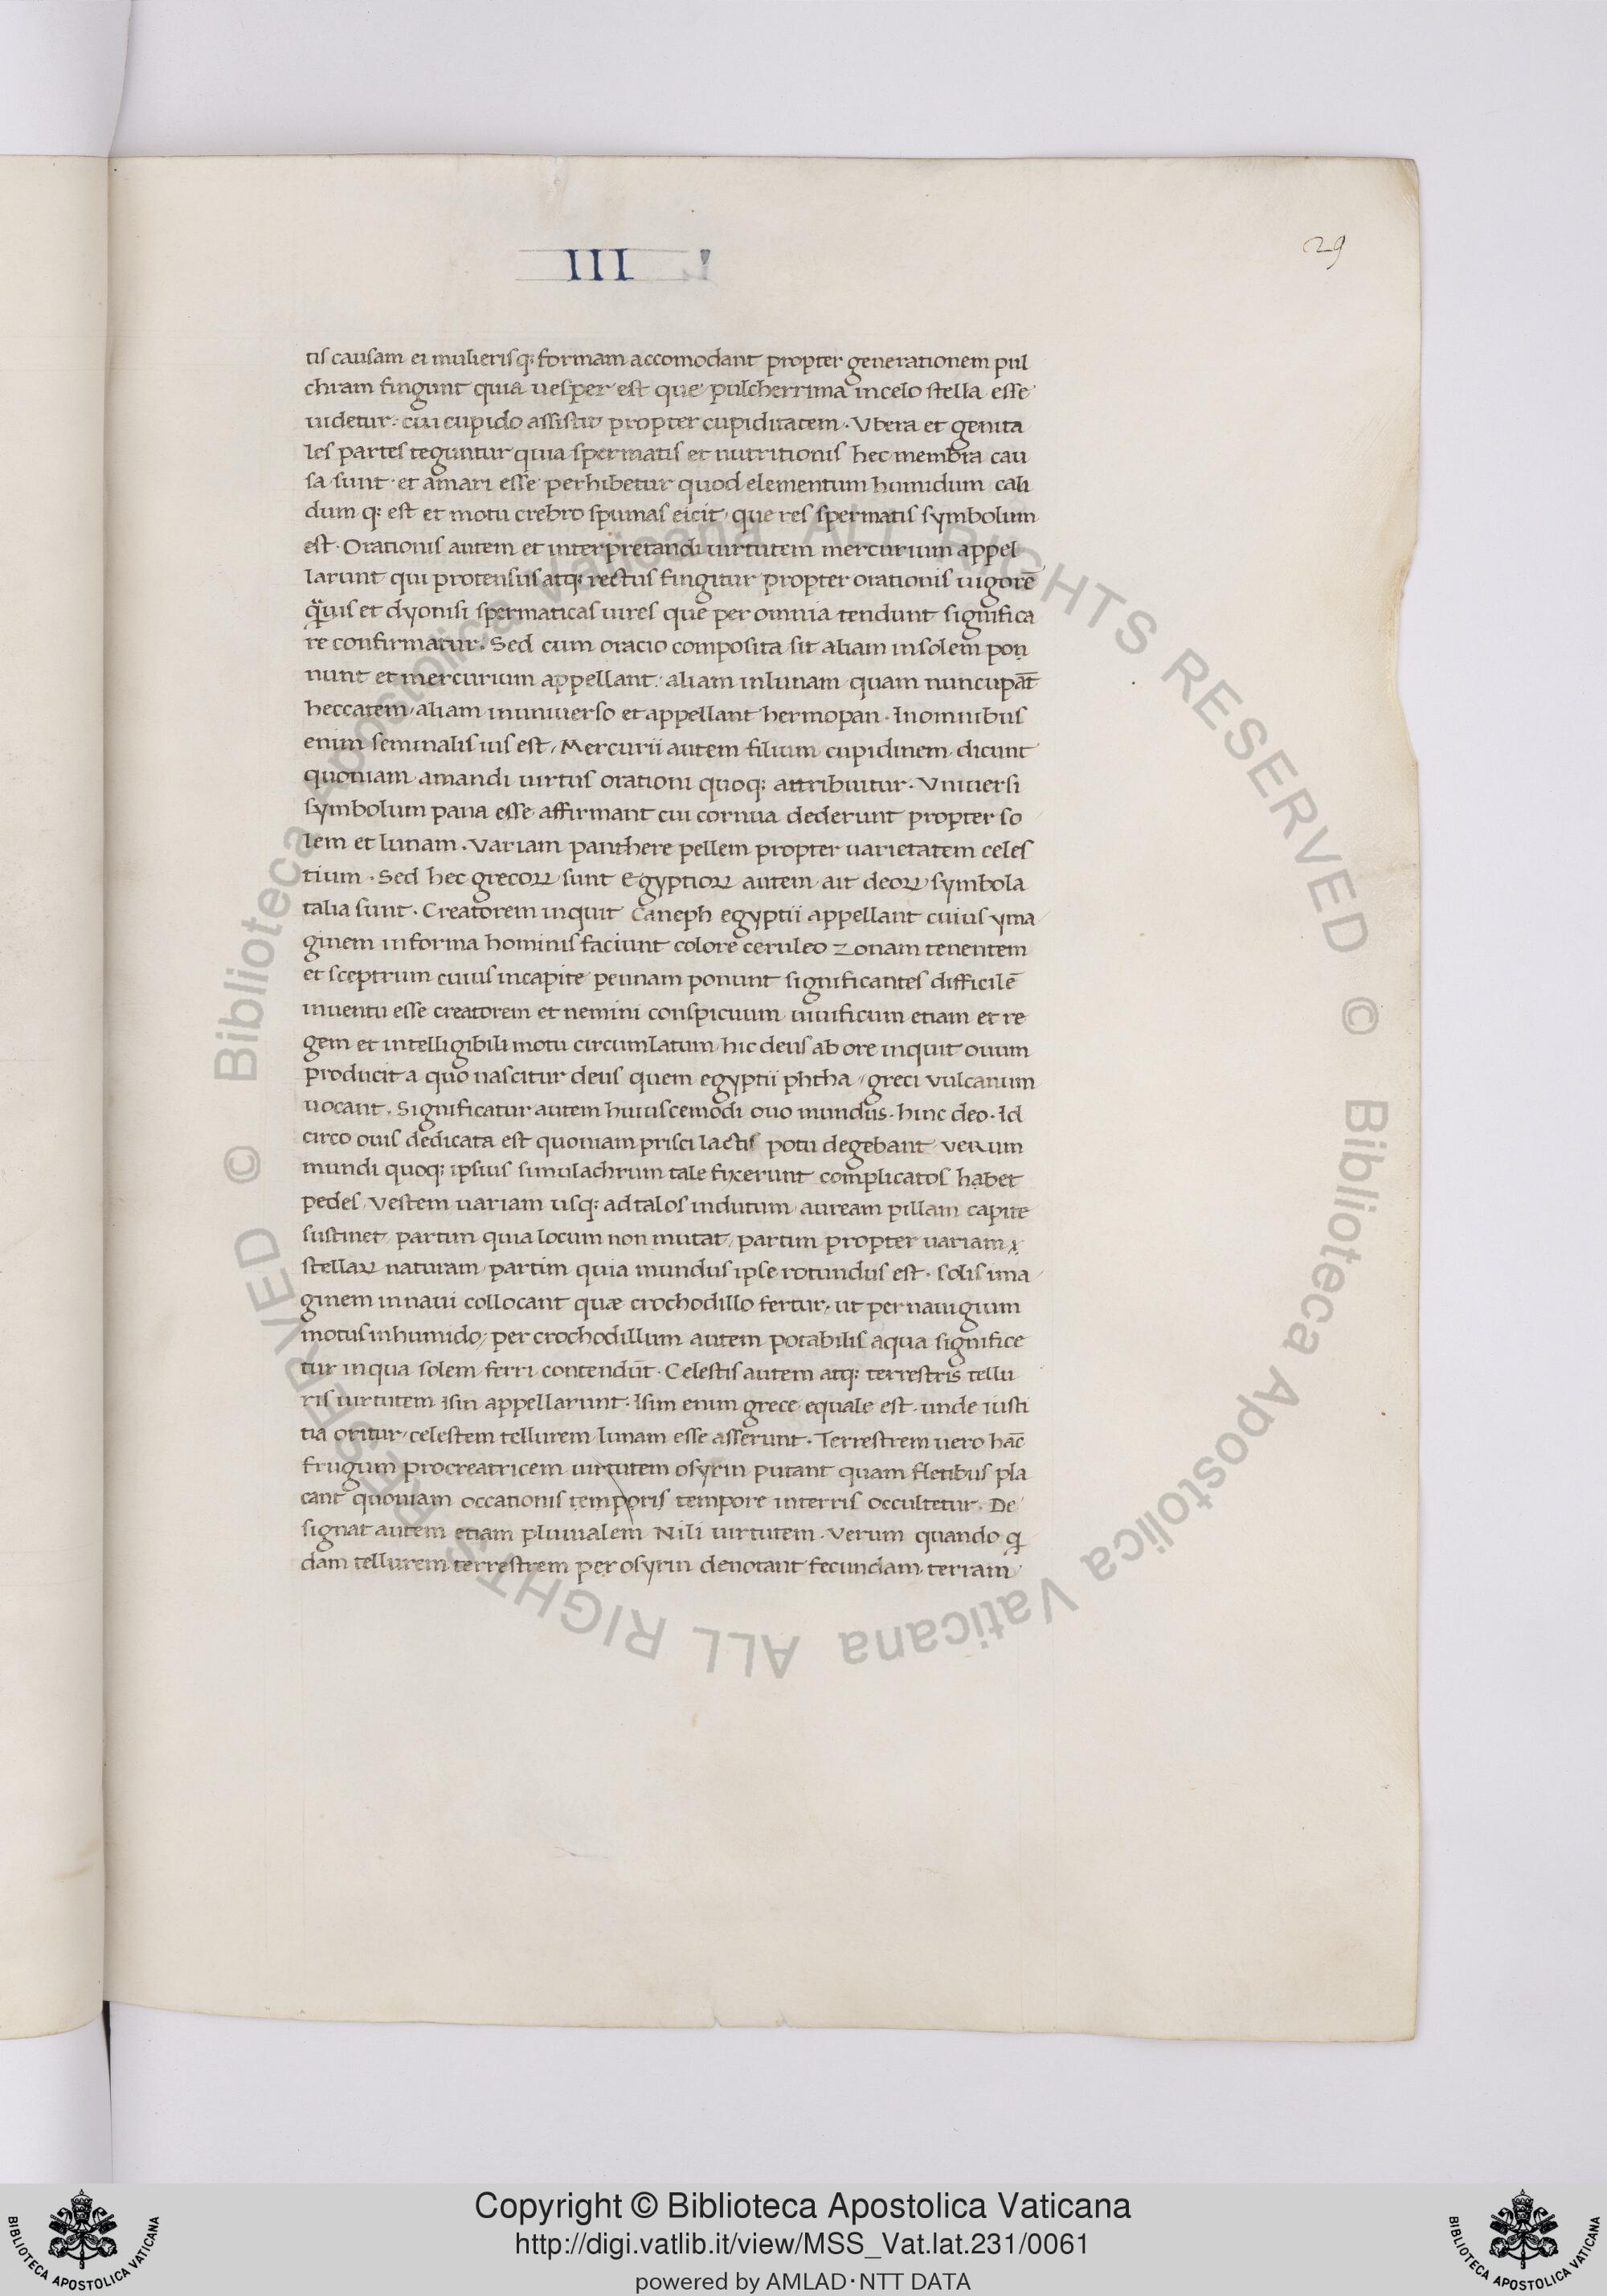 III L
29
tis causam ei mulierisq; formam accomodant propter generationem pul
chram fingunt quia uesper est que pulcherrima in celo stella esse
uidetur. cui cupido assistit propter cupiditatem. Vbera et genita
les partes teguntur quia spermatis et nutritionis hec membra cau
sa sunt. et amari esse perhibetur quod elementum humidum cali
dum q; est et motu crebro spumas eicit, que res spermatis symbolum
est. Orationis autem et interpretandi uirtutem mercurium appel
larunt qui protensus atq; rectus fingitur propter orationis uigorē
et dyonisi spermaticas uires que per omnia tendunt significa
re confirmatur. Sed cum oracio composita sit aliam in solem pon
nunt et mercurium appellant. aliam in lunam quam nuncupāt
heccatem, aliam in uniuerso et appellant hermopan. In omnibus
enim seminalis uis est, Mercurii autem filium cupidinem dicunt
quoniam amandi uirtus orationi quoq; attribuitur. Vniuersi
symbolum pana esse affirmant cui cornua dederunt propter so
lem et lunam. Variam panthere pellem propter uarietatem celes
tium. Sed hec grecoꝝ sunt Egyptioꝝ autem ait deoꝝ symbola
talia sunt. Creatorem inquit Caneph egyptii appellant cuius yma
ginem in forma hominis faciunt colore ceruleo zonam tenentem
et sceptrum cuius in capite pennam ponunt significantes difficilē
inuentu esse creatorem et nemini conspicuum uiuificum etiam et re
gem et intelligibili motu circumlatum, hic deus ab ore inquit ouum
producit a quo nascitur deus quem egyptii phtha, greci vulcanum
uocant. Significatur autem huiuscemodi ouo mundus. hinc deo. Id
circo ouis dedicata est quoniam prisci lactis potu degebant verum
mundi quoq; ipsius simulachrum tale fixerunt complicatos habet
pedes, Vestem uariam usq; ad talos indutum auream pillam capite
sustinet, partim quia locum non mutat, partim propter uariam
stellaꝝ naturam, partim quia mundus ipse rotundus est. solis ima
ginem in naui collocant quæ crochodillo fertur, ut per nauigium
motus in humido, per crochodillum autem potabilis aqua significe
tur in qua solem ferri contendūt. Celestis autem atq; terrestris tellu
ris uirtutem isin appellarunt. Isim enim grece equale est. unde iusti
tia oritur, celestem tellurem lunam esse asserunt. Terrestrem uero hāc
frugum procreatricem uirtutem osyrin putant quam fletibus pla
cant quoniam occationis temporis tempore in terris occultetur. De
signat autem etiam pluuialem Nili uirtutem. Verum quando
dam tellurem terrestrem per osyrin denotant fecundam terram
© Biblioteca Apostolica Vaticana ALL RIGHTS RESERVED © Biblioteca Apostolica Vaticana ALL RIGHTS RESERVED
BIBLIOTECA APOSTOLICA VATICANA
Copyright © Biblioteca Apostolica Vaticana
http://digi.vatlib.it/view/MSS_Vat.lat.231/0061
powered by AMLAD·NTT DATA
BIBLIOTECA APOSTOLICA VATICANA